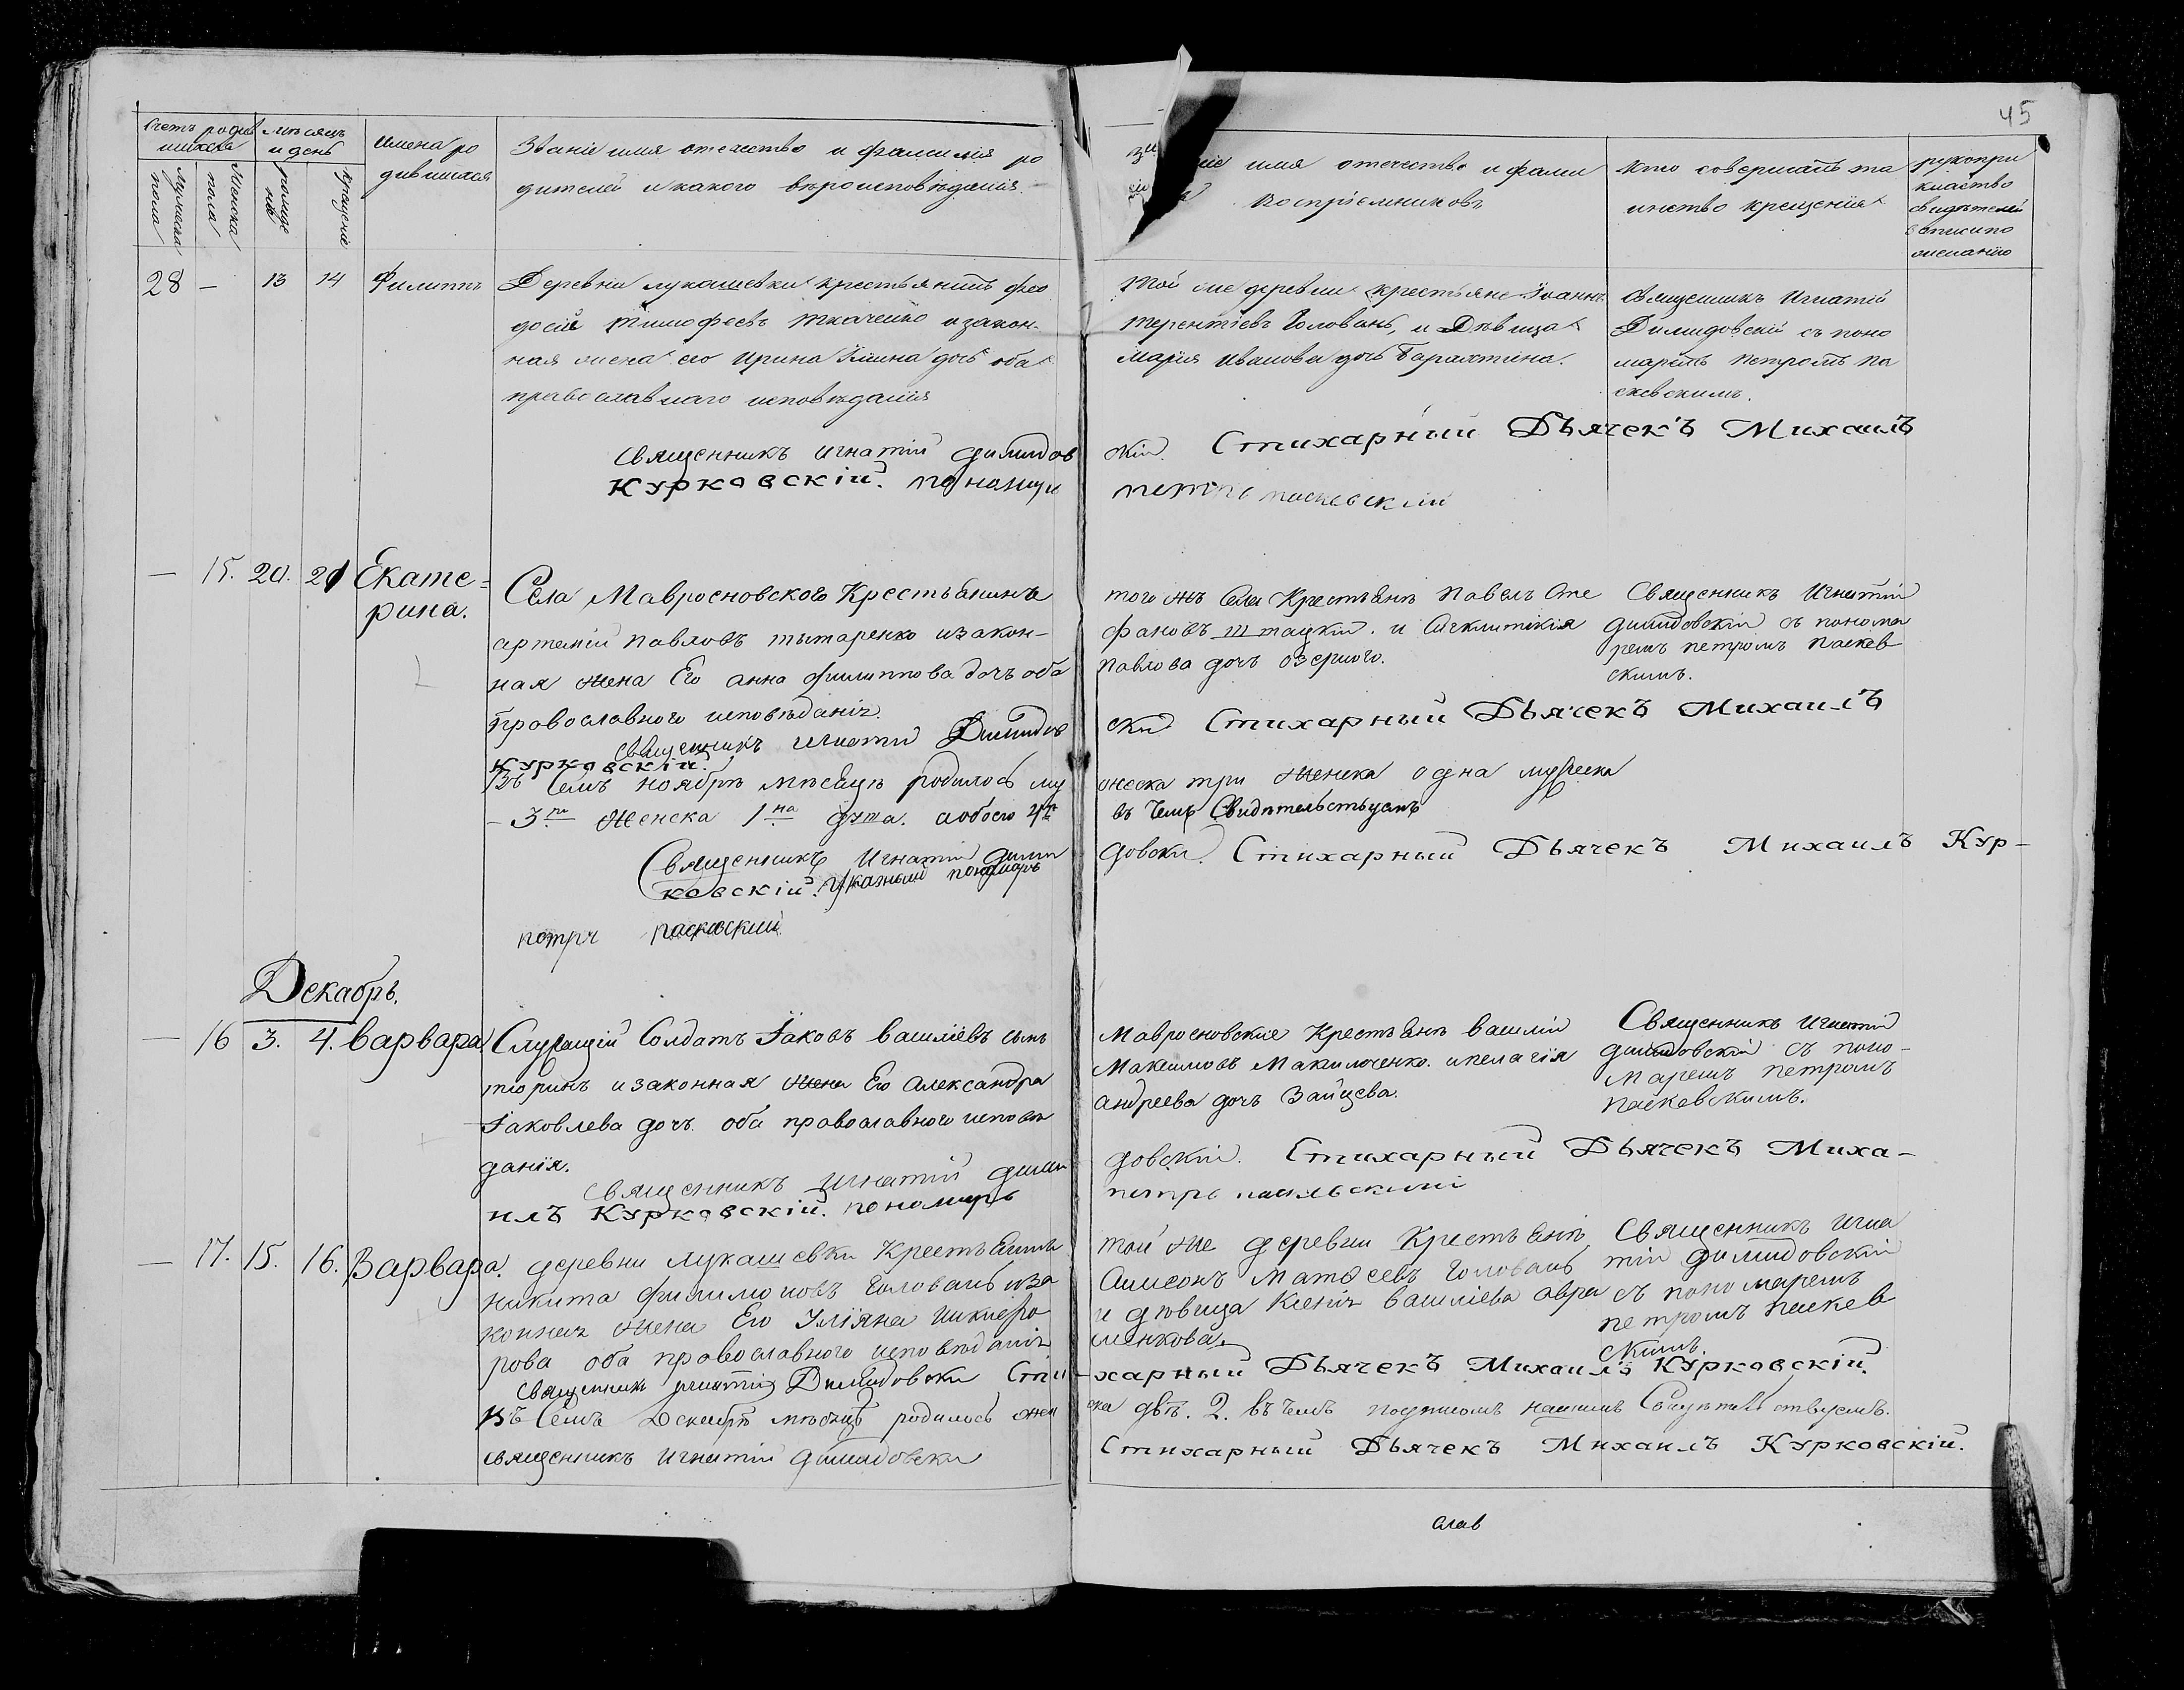 45
Счетъ родив
шихся
мѣсяцъ
и день
Имена ро
дившихся
Званіе имя отечество и фамилія ро
дителей и какого вѣроисповѣданія.
мужеска
пола
Женска
пола
рожде
ніе
крещеніе
имя отечество и фами
воспріемниковъ
кто совершалъ та
инство крещенія
рукопри
кладство
свидѣтелей
записи по
желанію
28 — 13 14 Филиппъ
Деревни лукашевки крестьянинъ фео
досій тимофеевъ ткаченко и закон-
ная жена его ирина дочь оба
православнаго исповѣданія
той же деревни крестьяне Іоаннъ
терентіевъ Головань, и Дѣвица
Марія Иванова дочь
Священникъ Игнатій
Димидовскій съ поно
маремъ петромъ па
скевскимъ.
Священникъ игнатій димидов
скій. Стихарный Дьячекъ Михаилъ
Курковскій. пономаръ
петръ паскевскій
— 15. 20. 21 Екате=
рина.
Села Мавросновского Крестьянинъ
артемій павловъ тытаренко и закон-
ная жена Его анна филиппова дочъ оба
православного исповѣданія.
того жъ села Крестьянъ павелъ Сте
фановъ и
павлова дочъ озерного.
Священникъ Игнатій
димидовскій съ понома
ремъ петромъ паскев
скимъ.
священникъ игнатій Димидов
ский Стихарный Дьячекъ Михаилъ
Курковскій.
Въ семъ ноябрѣ мѣсяцѣ родилось му
жеска три женска одна мужеска
— 3ри женска 1на душа. а обоего 4ре
въ чемъ Свидѣтельствуемъ
Священникъ Игнатій дими
довски. Стихарный Дьячекъ Михаилъ Кур-
ковскій. Указный пономарь
петръ паскевский
Декабрь.
— 16 3. 4. варвара
Служащій Солдатъ Іаковъ василіевъ сынъ
тюринъ и законная жена Его александра
Іаковлева дочъ. оба православного исповѣ
данія.
Мавросновские Крестьянъ василій
Максимовъ Максимченко. и пелагія
андреева дочъ Зайцева.
Священникъ игнатій
димидовскій съ поно-
маремъ петромъ
паскевскимъ.
священникъ игнатій дими
довскій. Стихарный Дьячекъ Миха-
илъ Курковскій. пономаръ
петръ
— 17. 15. 16. Варвара.
деревни лукашевки Крестьянинъ
никита филимоновъ Головань и за
конная жена Его Уліяна никифо
рова оба православного исповѣданія
той же деревни Крестьянѣ
Симеонъ матѳеевъ Головань
и дѣвица Ксенія василіева авра
менкова.
Священникъ игна
тій димидовскій
съ пономаремъ
петромъ паскев
скимъ.
священникъ игнатій Димидовски Сти-
харный Дьячекъ Михаилъ Курковскій.
Въ семъ Декабрѣ мѣсяцѣ родилось жен
ска двѣ. 2. въ чемъ подписомъ нашимъ Свидѣтельствуемъ.
священникъ игнатій димидовски
Стихарный Дьячекъ Михаилъ Курковскій.
слав